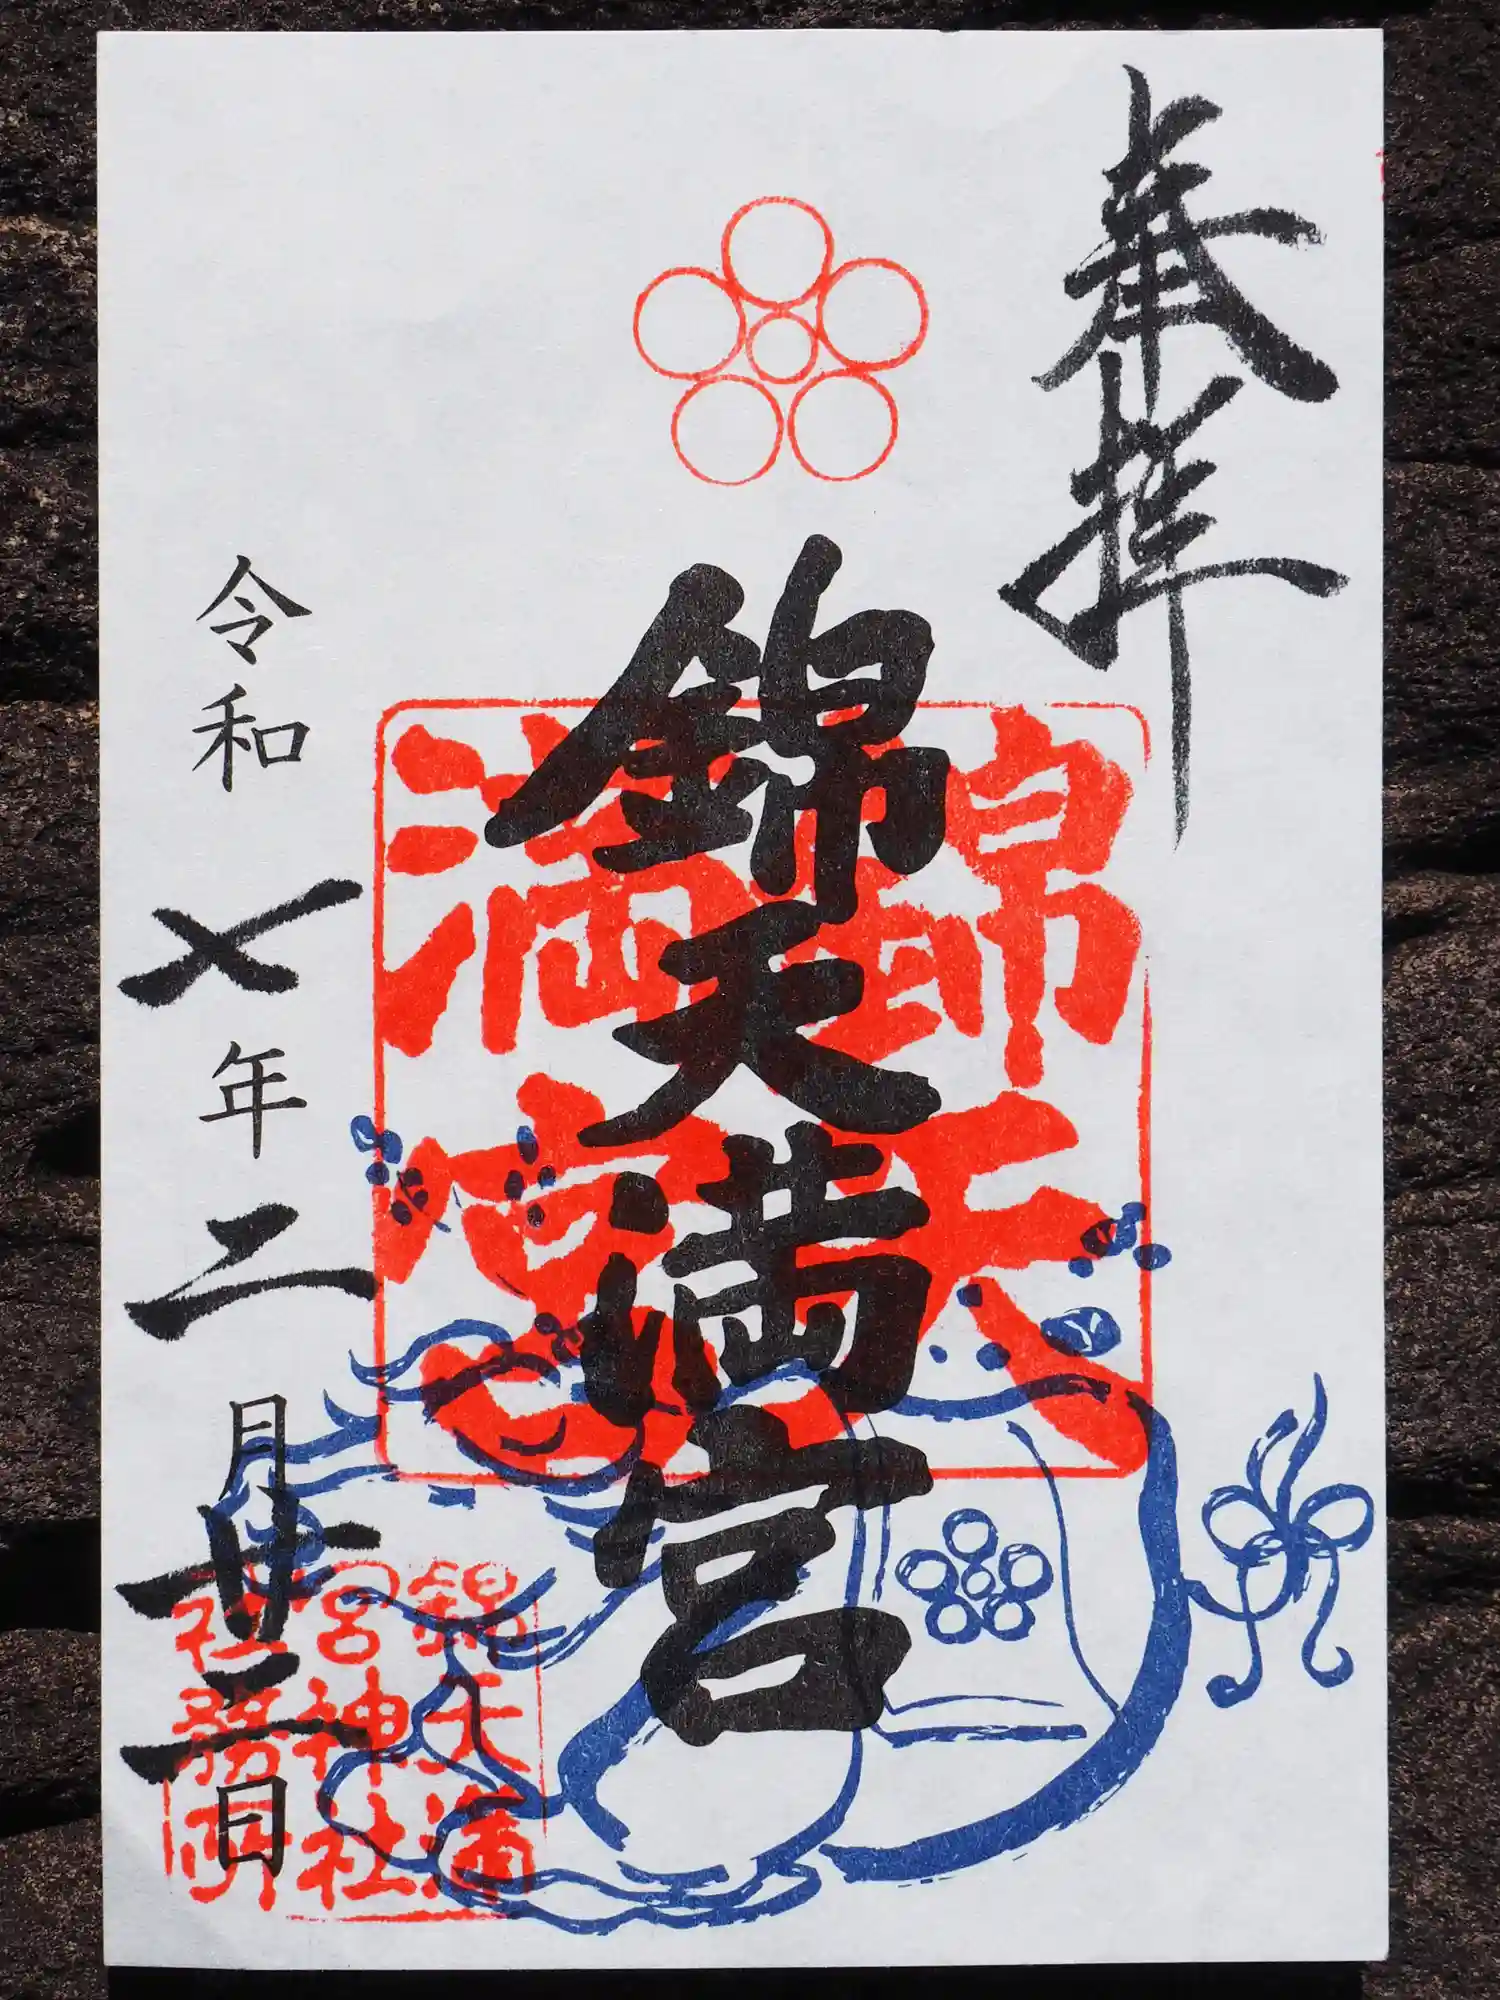 奉拝
錦天満宮
錦天
満宮
令和七年二月廿二日
錦天満
宮神社
社務所